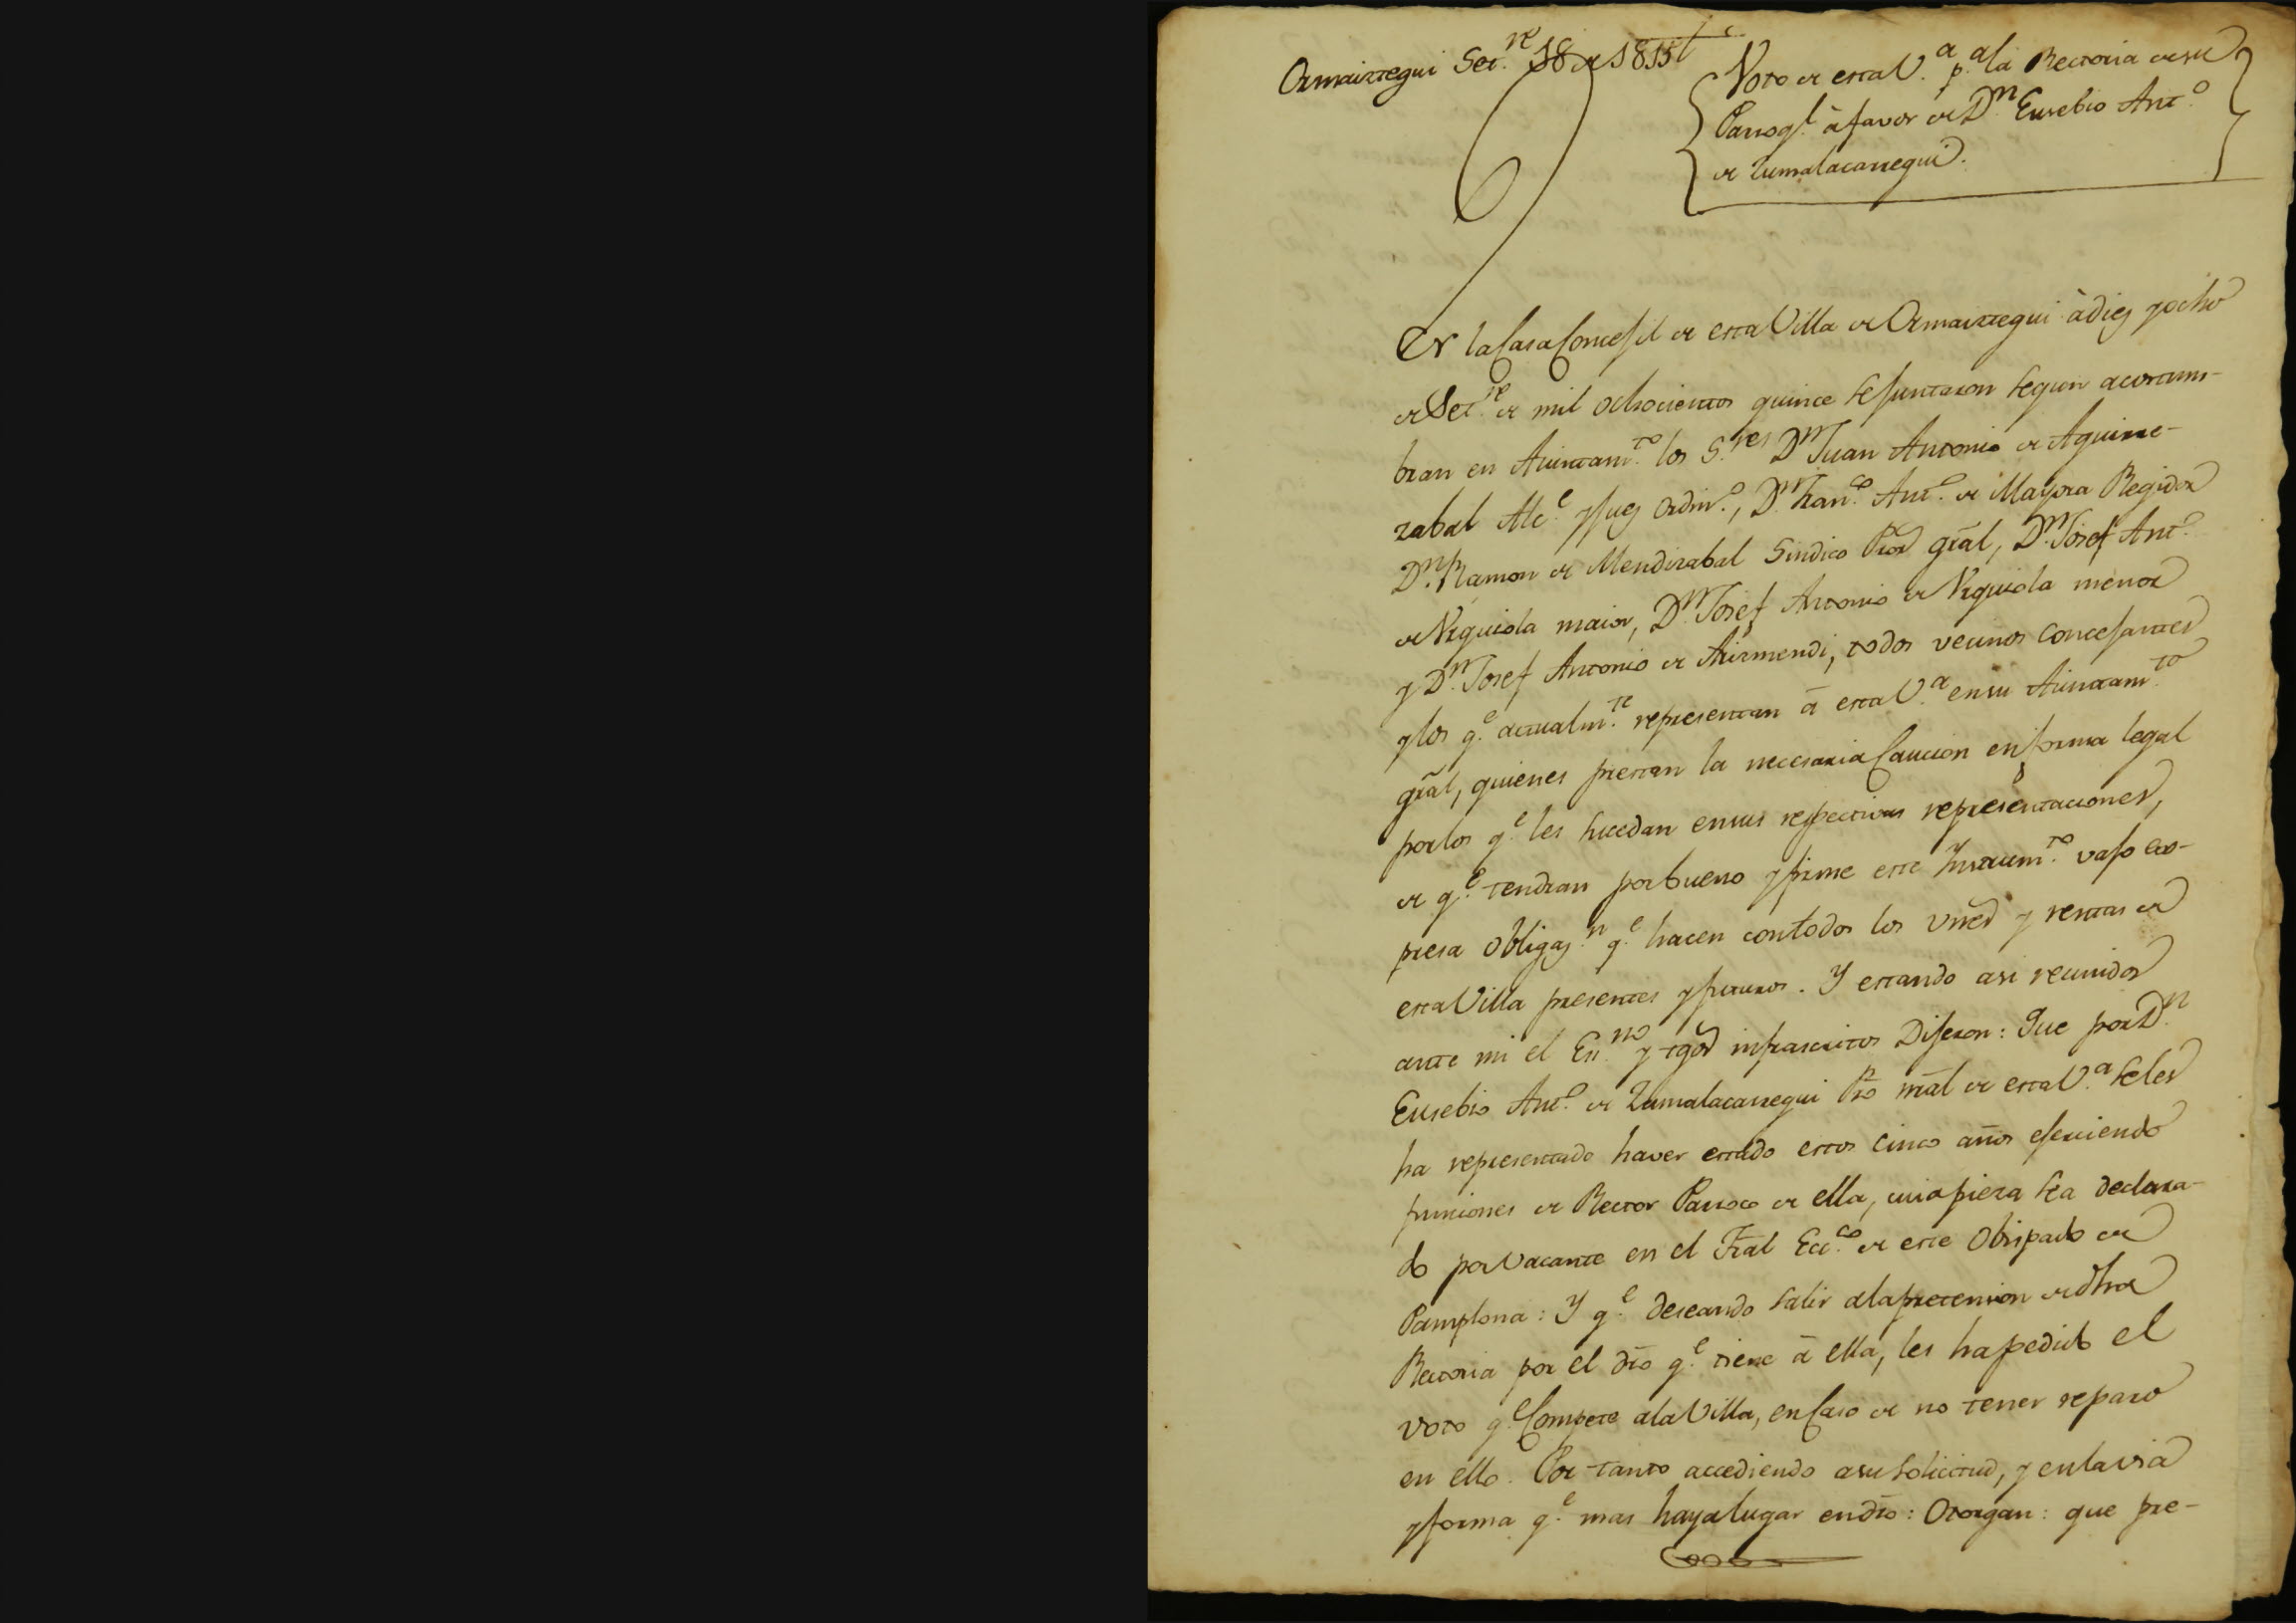 Ormaiztegui Set.re 18 de 1815
Voto de esta V.a p.a la Rectoria de su
Parroq.l à favor de D.n Eusebio Ant.o
de Zumalacarregui.
En la Casa Concejil de esta Villa de Ormaiztegui à diez y ocho
de Set.re de mil ochocientos quince se juntaron segun acostum-
bran en Aiuntam.to los S.res D.n Juan Antonio de Aguirre-
zabal Alc.e y Juez Ordin.o, D.n Fran.co Ant.o de Mayora Regidor
D.n Ramon de Mendizabal Sindico Pror gral, D.n Josef Ant.o
de Urquiola maior, D.n Josef Antonio de Urquiola menor
y D.n Josef Antonio de Arizmendi, todos vecinos concejantes
y los q.e actualm.te representan à esta V.a en su Aiuntam.to
gral, quienes prestan la necesaria Caucion en forma legal
por los q.e les sucedan en sus respectivas representaciones,
de q.e tendran por bueno y firme este Instrum.to vajo ex-
presa obligaz.n q.e hacen con todos los vnes y rentas de
esta Villa presentes y futuros. Y estando asi reunidos
ante mi el Es.no y tgos infrascritos Dijeron: Que por D.n
Eusebio Ant.o de Zumalacarregui Pro nral de esta V.a se les
ha representado haver estado estos cinco años ejerciendo
funciones de Rector Parroco de ella, cuia pieza se a declara-
do por vacante en el Tral Ecc.co de este Obispado de
Pamplona: Y q.e deseando salir a la pretension de dha
Rectoria por el dro q.e tiene à ella, les ha pedido el
voto q.e Compete a la Villa, en Caso de no tener reparo
en ello. Por tanto accediendo a su solicitud, y en la via
y forma q.e mas haya lugar en dro: Otorgan: que pre-